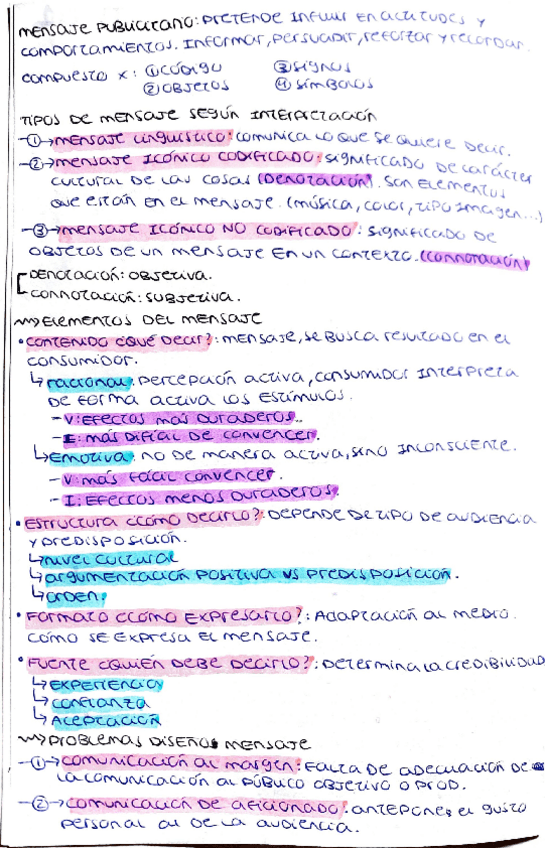 mensaje publicitario: pretende influir en actitudes y
comportamientos. Informar, persuadir, reforzar y recordar.
compuesto x: ① código ③ signos
② objetos ④ símbolos
TIPOS DE MENSAJE SEGÚN INTERPRETACIÓN
-①→mensaje lingüístico: comunica lo que se quiere decir.
-②→mensaje icónico codificado: significado de carácter
cultural de las cosas (denotación). son elementos
que están en el mensaje. (música, color, tipo imagen...)
-③→mensaje icónico NO codificado: significado de
objetos de un mensaje en un contexto. (connotación)
Denotación: objetiva.
connotación: subjetiva.
Elementos del mensaje
• contenido ¿qué decir?: mensaje, se busca resultado en el
consumidor.
↳ racional: percepción activa, consumidor interpreta
de forma activa los estímulos.
- V: Efectos más duraderos.
- I: más difícil de convencer.
↳ Emotiva: no de manera activa, sino inconsciente.
- V: más fácil convencer.
- I: Efectos menos duraderos.
• Estructura ¿cómo decirlo?: Depende de tipo de audiencia
y predisposición.
↳ nivel cultural
↳ argumentación positiva vs predisposición.
↳ orden.
• Formato ¿cómo expresarlo?: Adaptación al medio.
cómo se expresa el mensaje.
• Fuente ¿quién debe decirlo?: determina la credibilidad
↳ Experiencia
↳ confianza
↳ Aceptación
Problemas diseños mensaje
-①→comunicación al margen: Falta de adecuación de
la comunicación al público objetivo o prod.
-②→comunicación de aficionado: antepone el gusto
personal al de la audiencia.